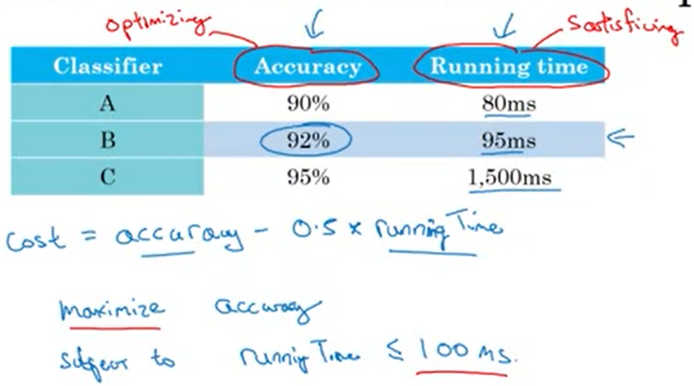 optimizing Satisficing
Classifier Accuracy Running time
A 90% 80ms
B 92% 95ms
C 95% 1,500ms
cost = accuracy - 0.5 x running Time
maximize accuracy
subject to running Time ≤ 100 ms.